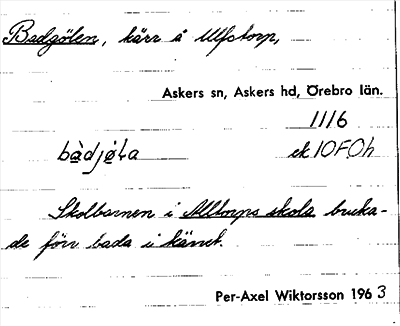 Badgölen, kärr å Ulfstorp,
Askers sn, Askers hd, Örebro län.
1116
bàdjǿLa ek 10F0h
Skolbarnen i Alltorps skola bruka-
de förr bada i kärret.
Per-Axel Wiktorsson 1963